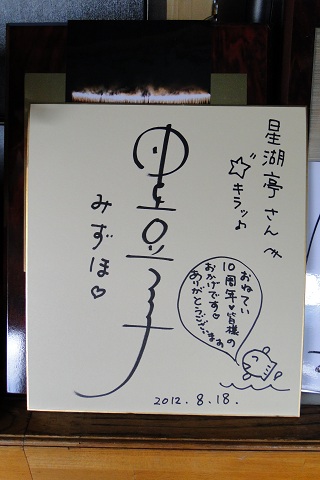 星湖亭さんへ
☆キラッ♪
みずほ♡
おねてい
10周年♥皆様の
おかげです♡
ありがとうございまぁ
2012.8.18.